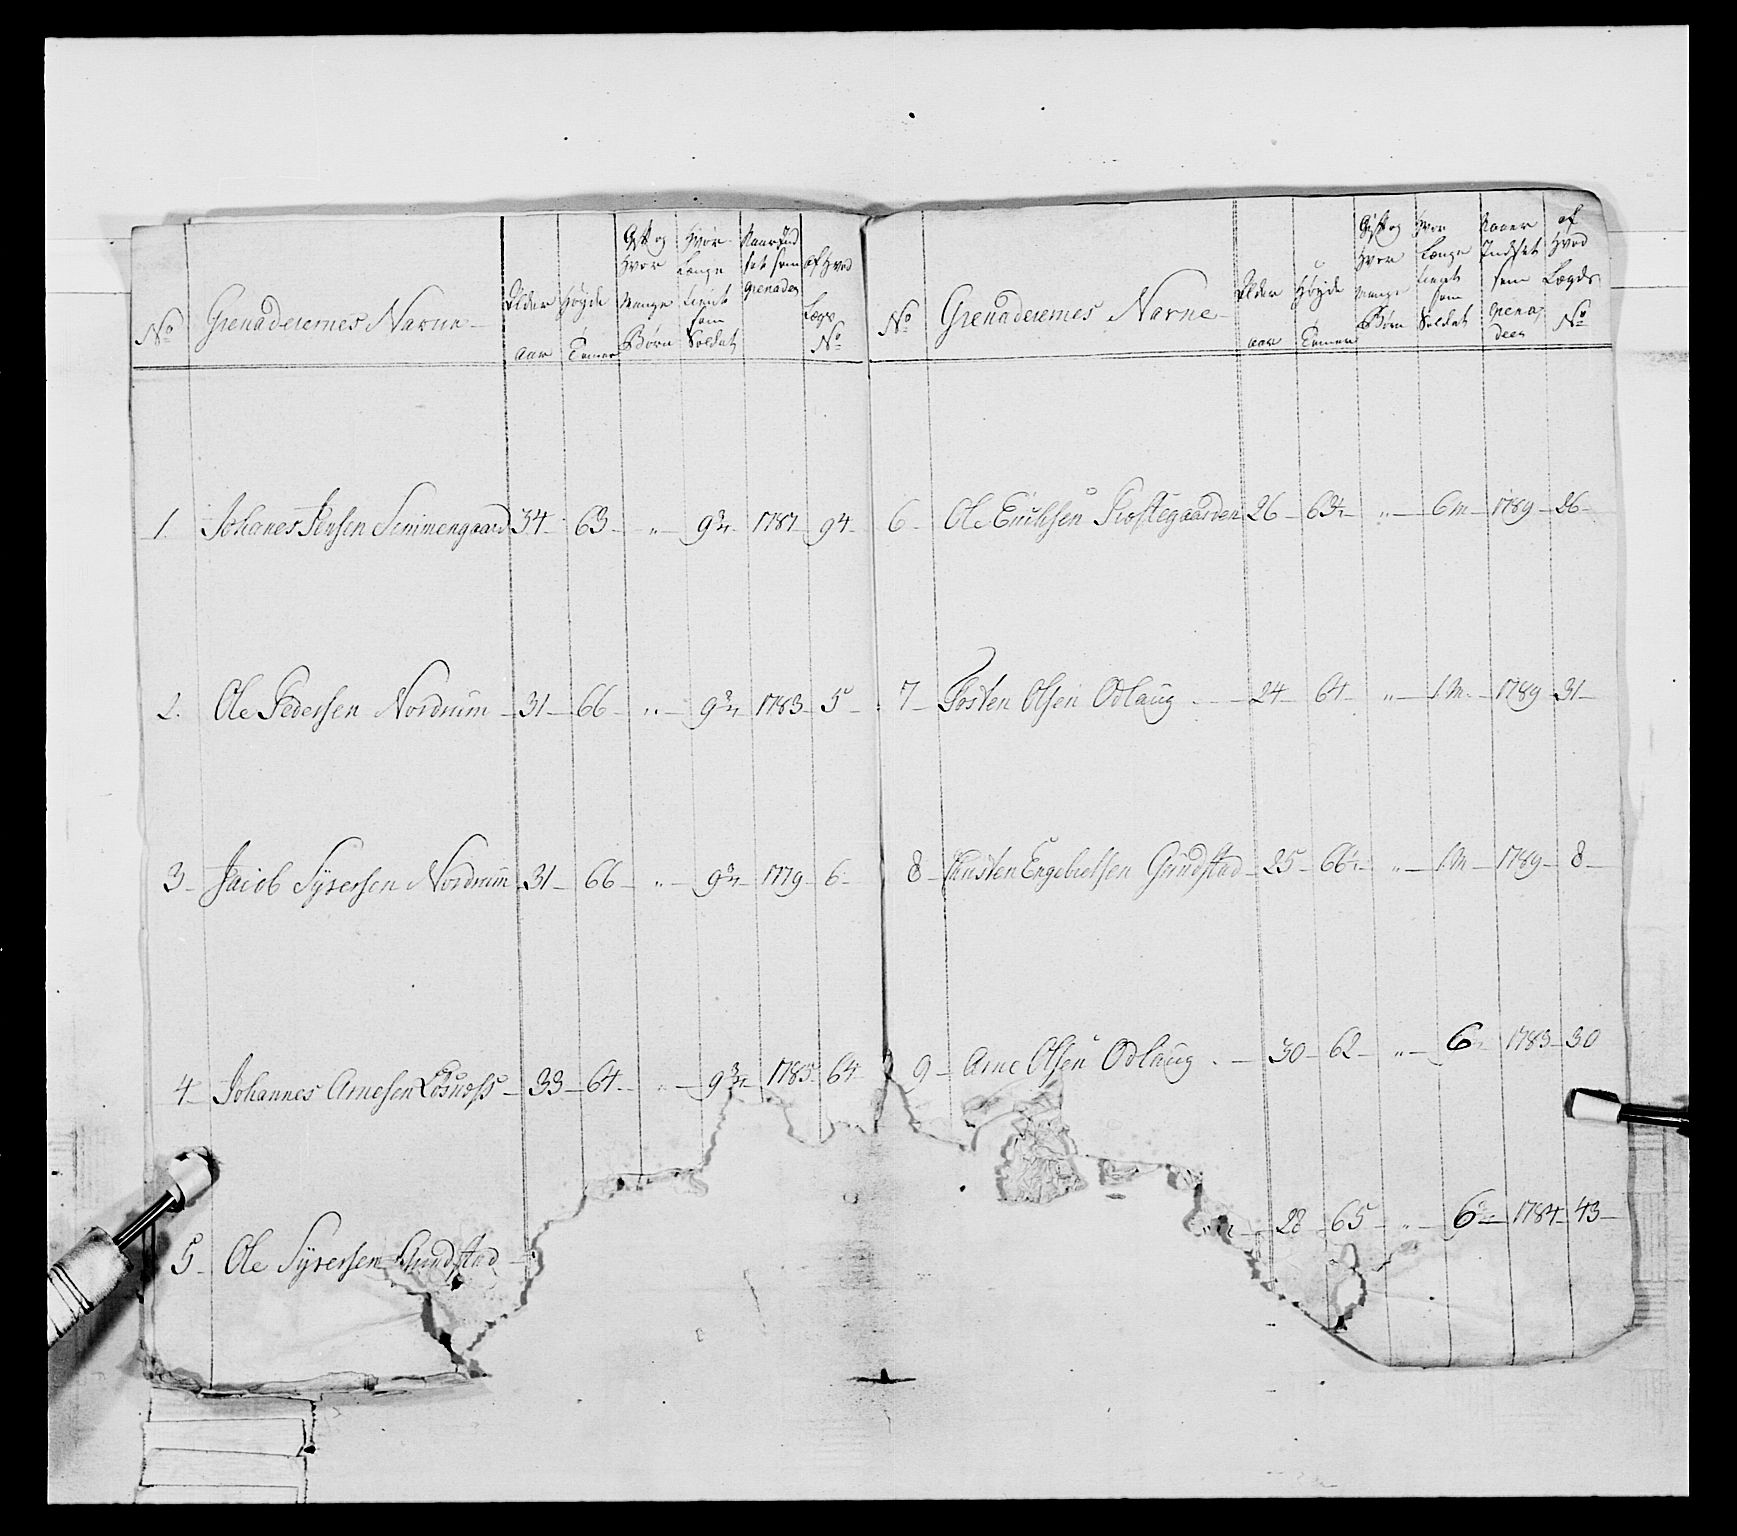 No
Grenaderernes Navne
Alder
Aar
Høyde
Tomer
Gift og
Hvor
Mange
Børn
Hvor
Længe
tient
som
Soldat
Naar Ind
sat som
Grenader
af Hvad
Lægs
No
1. Johanes Jensen Simmengaard 34 63 " 9 3/4 1787 94
2. Ole Pedersen Nordrum 31 66 " 9 3/4 1783 5
3 Jacob Syversen Nordrum 31 66 " 9 3/4 1779 6
4 Johannes Arnesen 33 64 " 9 3/4 1785 64
5 Ole Syversen Grundstad
No
Grenaderernes Navne
Alder
Aar
Høyde
Tomer
Gift og
Hvor
Mange
Børn
Hvor
Længe
tient
som
Soldat
Naaer
Indsat
som
Grena
deer
af
Hvad
Lægds
No
6 Ole Erichsen Prostegaarden 26 63 1/2 " 6 M 1789 26
7 Tosten Olsen Odlaug 24 64 " 1 M 1789 31
8 Christen Engebretsen Grundstad 25 66 1/2 " 1 M 1789 8
9 Arne Olsen Odlaug 30 62 " 6 1783 30
28 65 " 6 1784 43